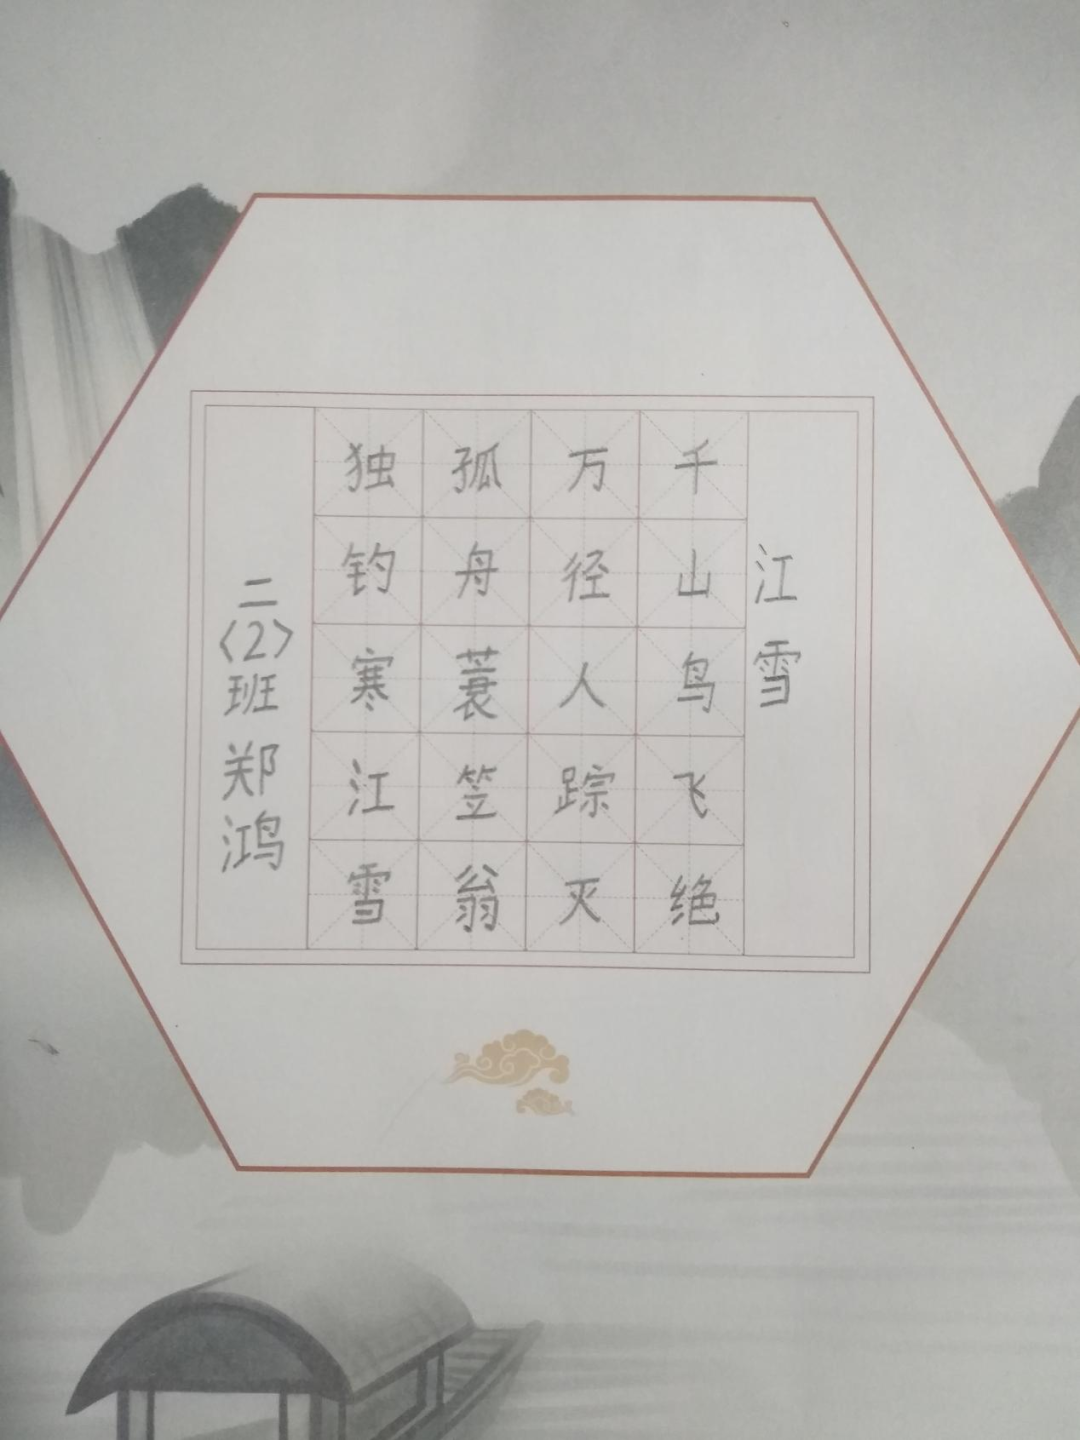 江雪
千山鸟飞绝
万径人踪灭
孤舟蓑笠翁
独钓寒江雪
二〈2〉班郑鸿